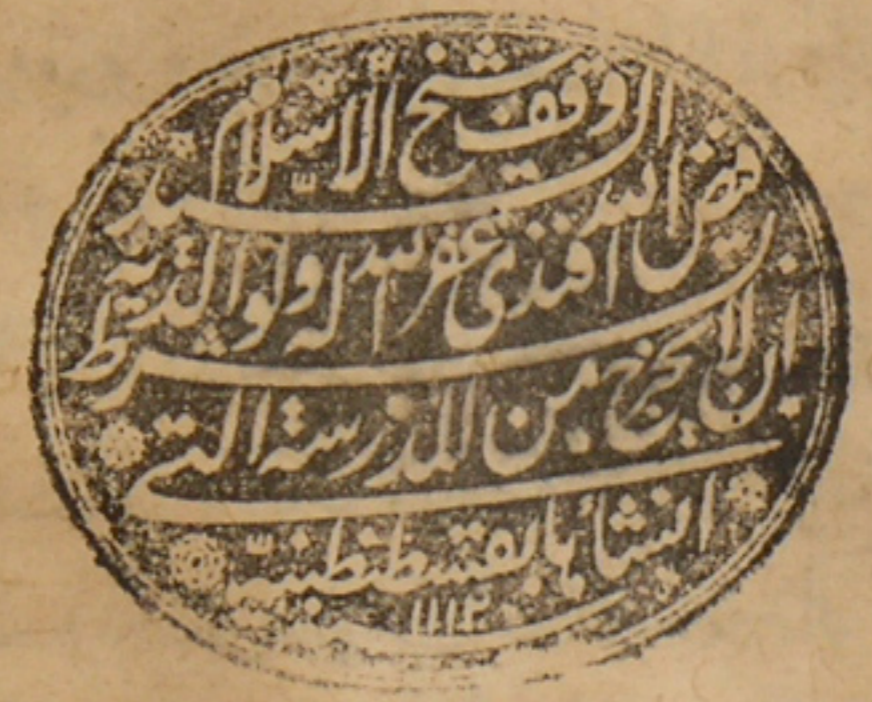 وقف شيخ الاسلام السيد
فيض الله افندى غفر الله له ولوالديه بشرط
ان لا يخرج من المدرسة التى
انشأها بقسطنطنيه
١١١٢